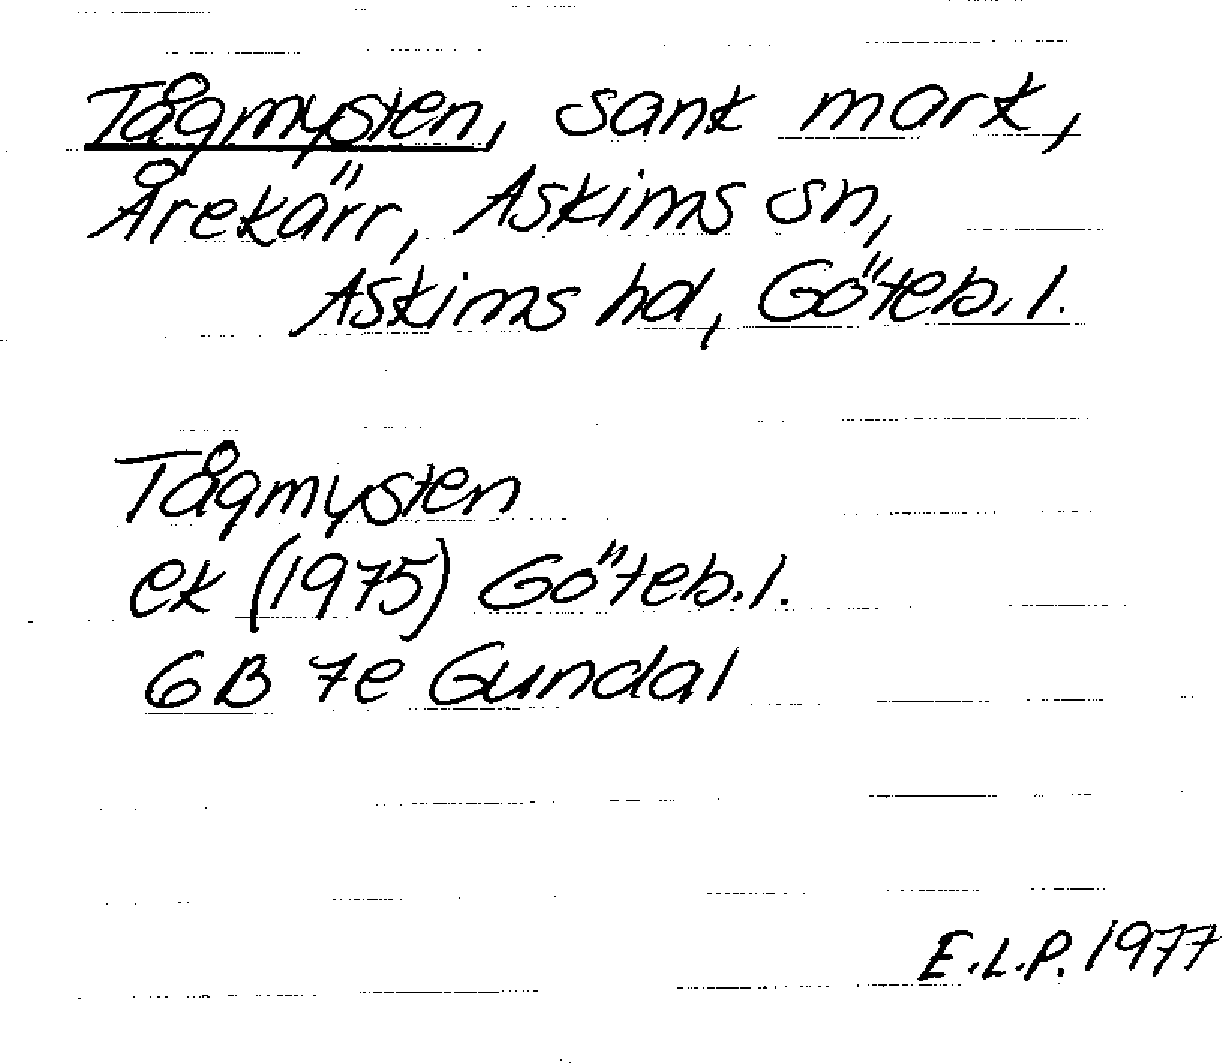 Tågmysten, sank mark,
Årekärr, Askims sn,
Askims hd, Göteb. l.
Tågmysten
ek (1975) Göteb. l.
6B 7e Gundal
E.L.P. 1977